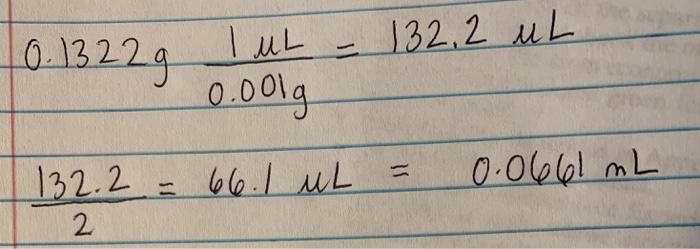 0.1322g 1 uL / 0.001g = 132.2 uL
132.2 / 2 = 66.1 uL = 0.0661 mL